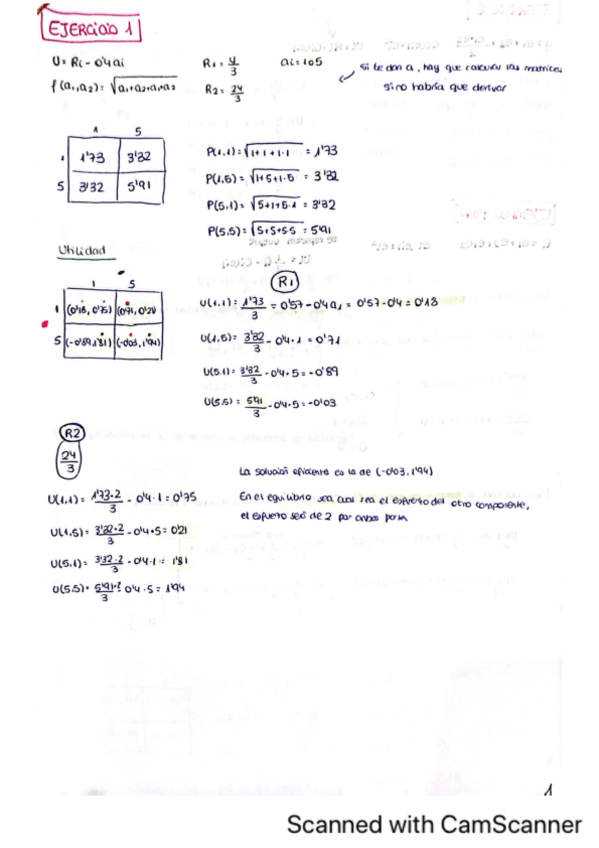 EJERCICIO 1
U = Ri - 0'4 ai
R1 = y/3
ai = 1 o 5
Si te dan a, hay que calcular las matrices
sino habría que derivar
f(a1, a2) = √a1+a2+a1a2
R2 = 2y/3
1 5
1 1'73 3'32
5 3'32 5'91
P(1,1) = √1+1+1·1 = 1'73
P(1,5) = √1+5+1·5 = 3'32
P(5,1) = √5+1+5·1 = 3'32
P(5,5) = √5+5+5·5 = 5'91
Utilidad
1 5
1 (0'18, 0'75) (0'71, 0'21)
5 (-0'89, 1'81) (-0'03, 1'94)
R1
U(1,1) = 1'73/3 = 0'57 - 0'4 a1 = 0'57 - 0'4 = 0'18
U(1,5) = 3'32/3 - 0'4·1 = 0'71
U(5,1) = 3'32/3 - 0'4·5 = -0'89
U(5,5) = 5'91/3 - 0'4·5 = -0'03
R2
2y/3
U(1,1) = 1'73·2/3 - 0'4·1 = 0'75
U(1,5) = 3'32·2/3 - 0'4·5 = 0'21
U(5,1) = 3'32·2/3 - 0'4·1 = 1'81
U(5,5) = 5'91·2/3 - 0'4·5 = 1'94
La solución eficiente es la de (-0'03, 1'94)
En el equilibrio sea cual sea el esfuerzo del otro componente,
el esfuerzo será de 2 por ambas
1
Scanned with CamScanner